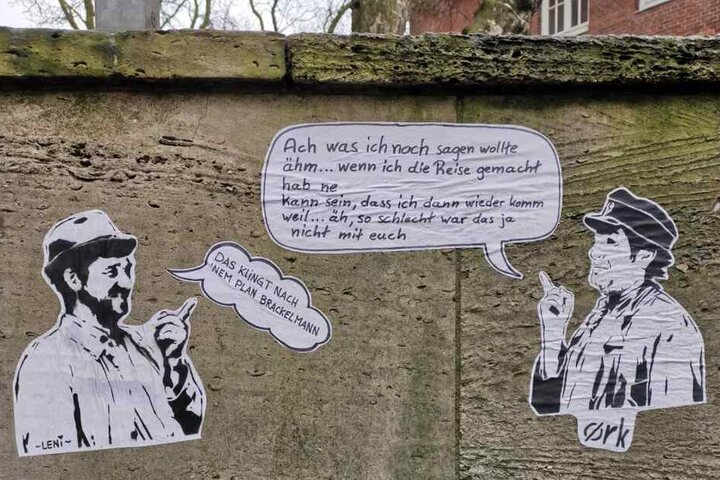 Ach was ich noch sagen wollte
ähm... wenn ich die Reise gemacht
hab ne
kann sein, dass ich dann wieder komm
weil... äh, so schlecht war das ja
nicht mit euch
DAS KLINGT NACH
'NEM PLAN BRACKELMANN
~LENi~
ørk